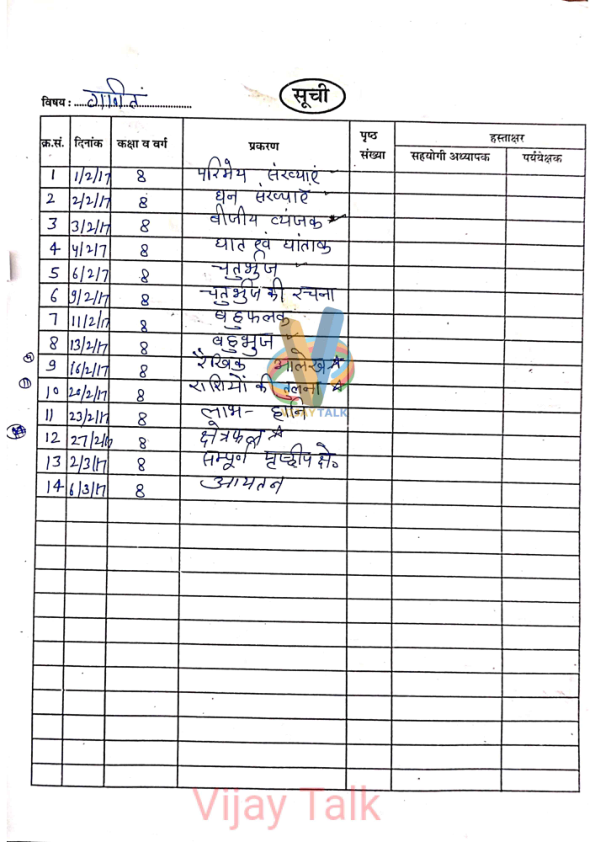 सूची
विषय : गणित
क्र.सं. दिनांक कक्षा व वर्ग प्रकरण पृष्ठ संख्या हस्ताक्षर
सहयोगी अध्यापक पर्यवेक्षक
1 1/2/17 8 परिमेय संख्याएं
2 2/2/17 8 घन संख्याऐं
3 3/2/17 8 बीजीय व्यंजक
4 4/2/7 8 घात एवं घातांक
5 6/2/7 8 चतुर्भुज
6 9/2/17 8 चतुर्भुज की रचना
7 11/2/17 8 बहुफलक
8 13/2/17 8 बहुभुज
9 16/2/17 8 रैखिक आलेख
10 20/2/17 8 राशियों की तुलना
11 23/2/17 8 लाभ - हानि
12 27/2/ 8 क्षेत्रफल
13 2/3/17 8 सम्पूर्ण पृष्ठीय क्षे०
14 6/3/17 8 आयतन
TALK
Vijay Talk